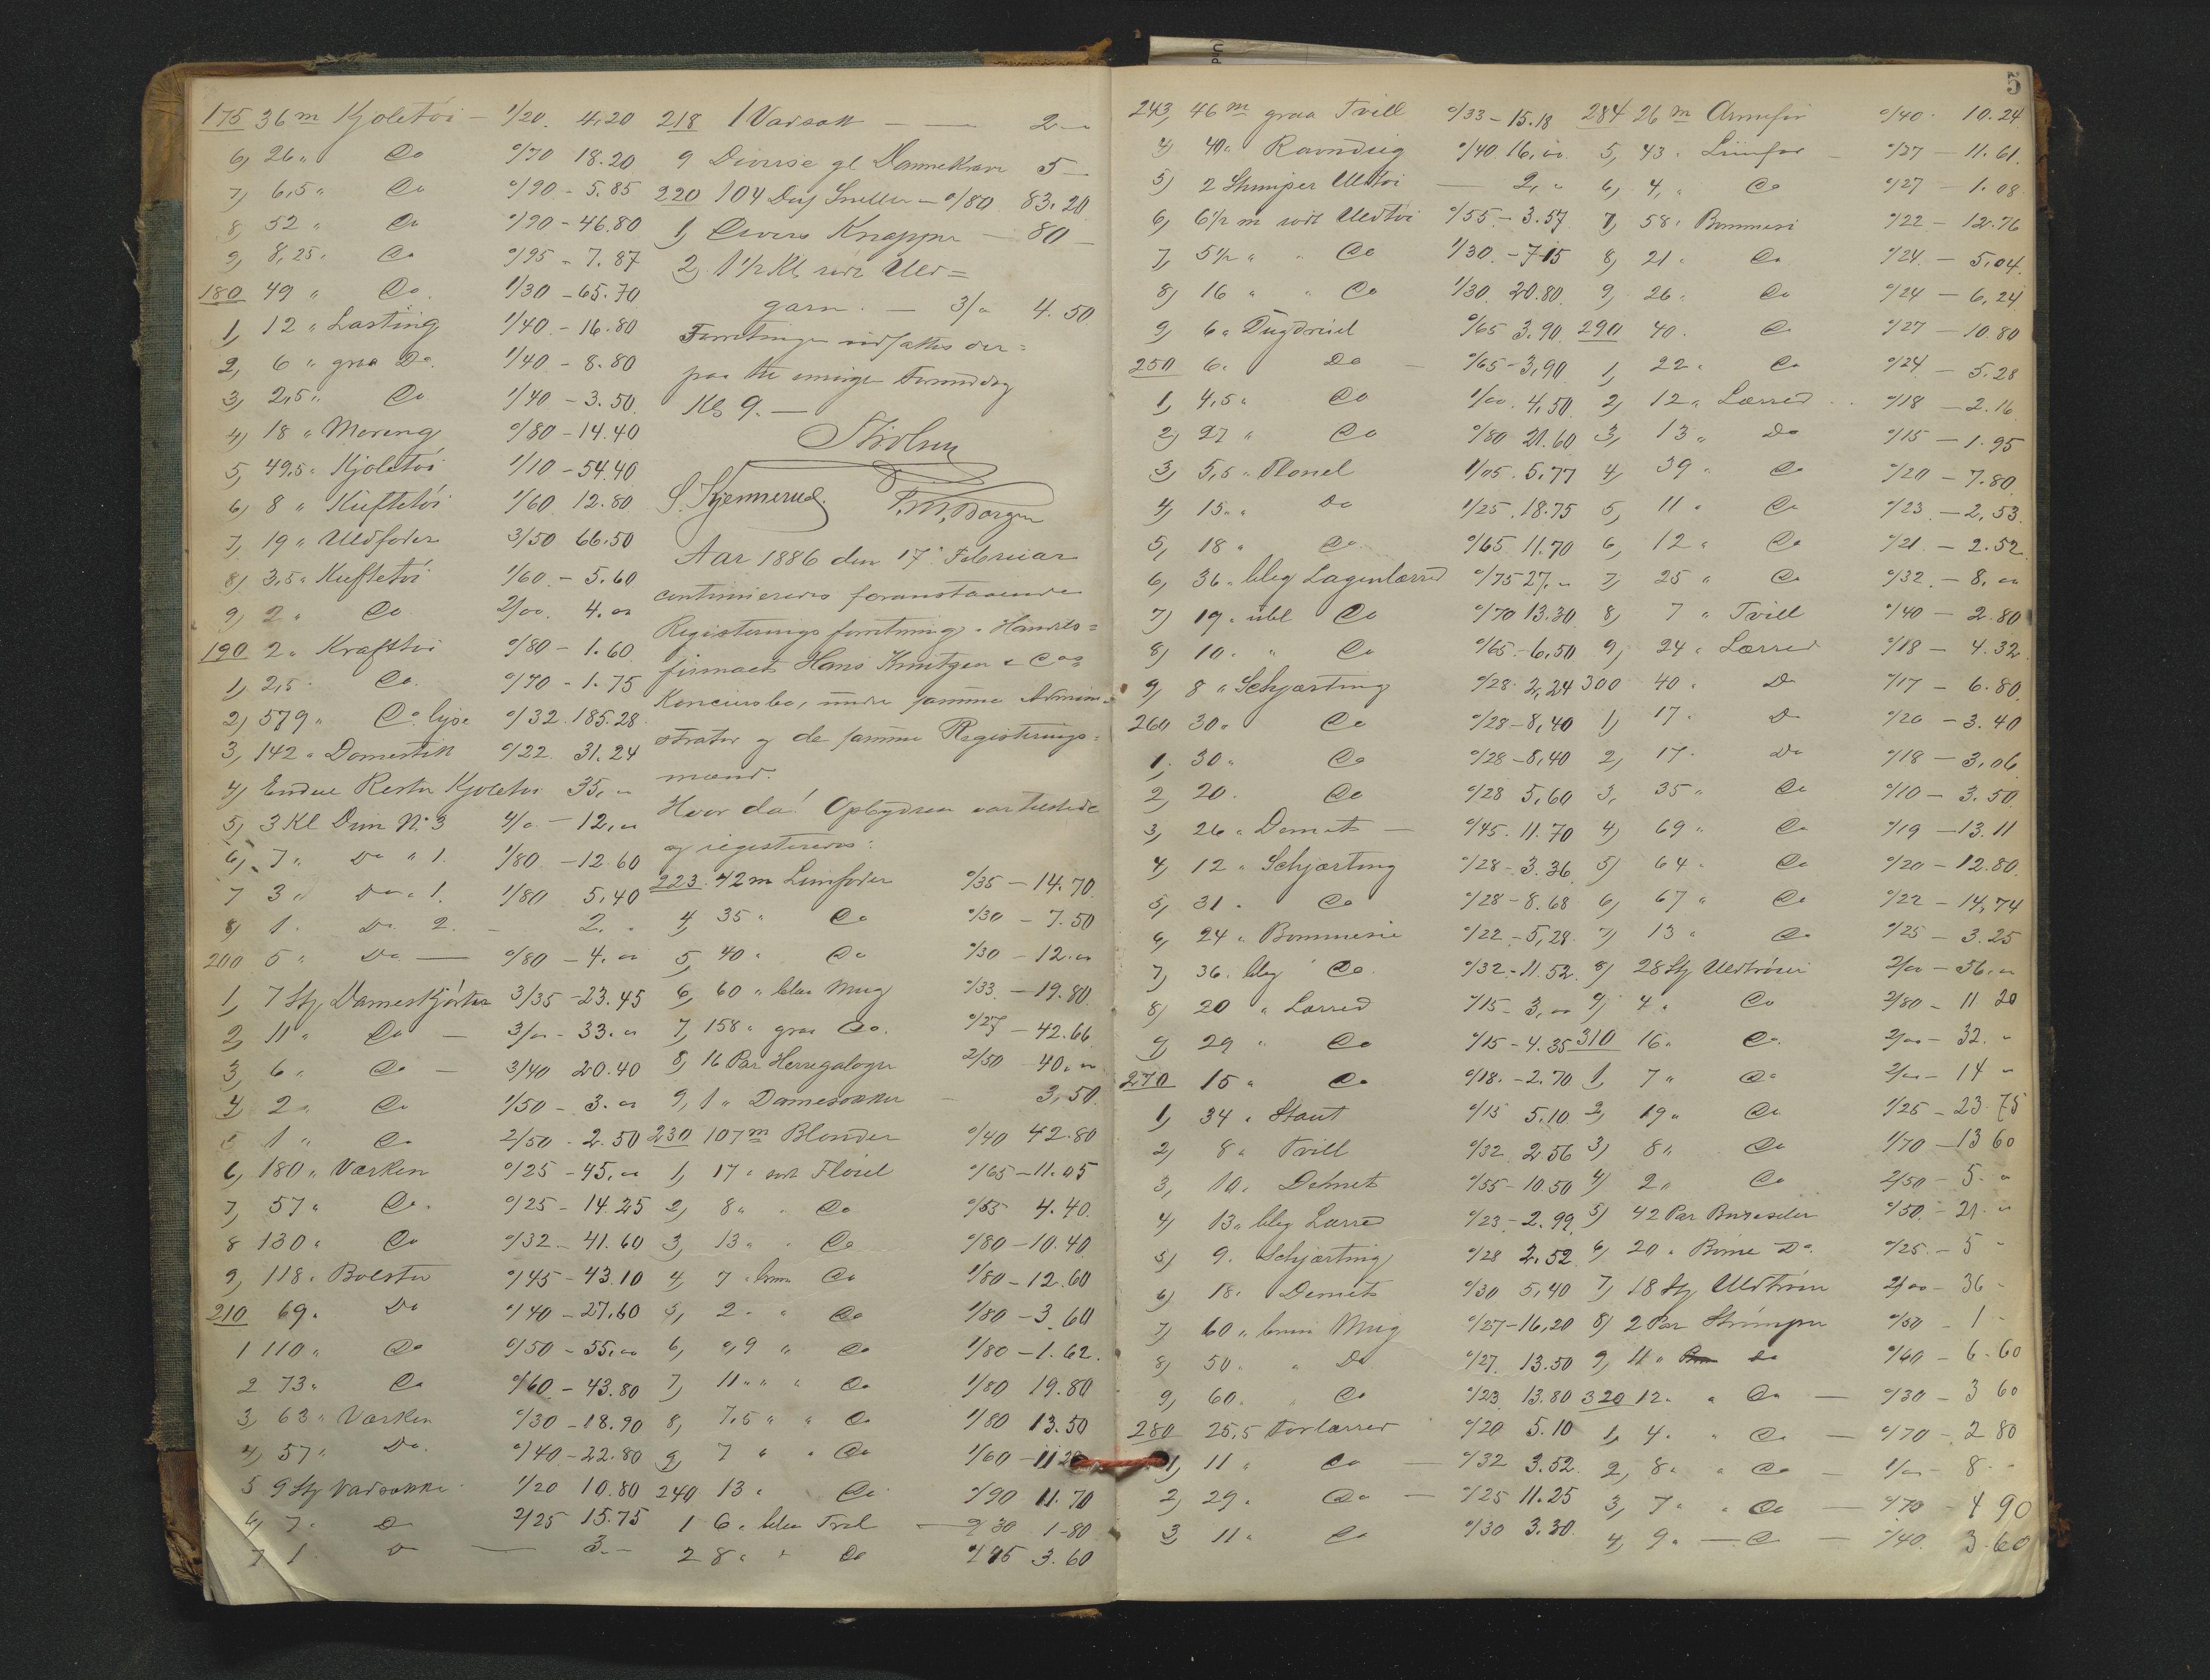 175 36 m Kjoletöi - 1/20. 4,20
6, 26 " Do 0/70 18.20
7, 6,5 " Do 0/90 - 5.85
8, 52 " Do 0/90 - 46.80
9, 8,25 " Do 0/95 - 7.87
180 49 " Do 1/30 - 65.70
1, 12 " Lasting 1/40 - 16.80
2, 6 " graa Do 1/40 - 8.80
3, 2,5 " Do 1/40 - 3.50
4, 18 " Moreng 0/80 - 14.40
5, 49,5 " Kjoletöi 1/10 - 54.40
6, 8 " Kuftetöi 1/60 12.80
7, 19 " Uldfoder 3/50 66.50
8, 3,5 " Kuftetöi 1/60 - 5.60
9, 2 " Do 2/00 4.00
190 2 " Kraftöi 0/80 - 1.60
1, 2,5 " Do. 0/70 - 1.75
2, 579 " Do lyse 0/32 185.28
3, 142 " Domestik 0/22 31.24
4, Endel Rester Kjoletöi 35,00
5, 3 Kl Dun No 3 4/0 - 12,00
6, 7 " Do " 1. 1/80 - 12.60
7 3 " Do " 1. 1/80 5,40
8, 1 " Do 2. - 2. "
200 5 " Do - 0/80 - 4.00
1, 7 Stk Dameskjörter 3/35 - 23.45
2, 11 " Do - 3/00 - 33.00
3, 6 " Do - 3/40 20.40
4, 2 " Do 1/50 - 3.00
5 1 " Do 2/50 - 2.50
6, 180 " Værken 0/25 - 45,00
7, 57 " Do. 0/25 - 14.25
8 130 " Do 0/32 - 41.60
9, 118 " Bolster 0/45 - 43.10
210 69 " Do 0/40 - 27.60
1 110 " Do 0/50 - 55,00
2 73 " Do 0/60 - 43.80
3, 63 " Værken 0/30 - 18.90
4, 57 " Do. 0/40 - 22.80
5 9 Stk Vadsække 1/20 10.80
6, 7 " D 2/25 15.75
7 1 D - 3. -
218 1 Vadsæk - - 2 -
9 Diverse gl Dannekraver 5 -
220 104 Dus Sneller - 0/80 83.20
1, Divers Knapper - 80 -
2, 1 1/2 Kl röde Uld =
garn. - 3/0 4.50
Forretningen udsattes der =
paa til imorgen Formiddag
Kl 9. -
S. Kjennerud. P. M. Borgen
Aar 1886 den 17 Februar
continueredes foranstaaende
Registerings forretning i Handels =
firmaet Hans Knutzen & Co=s
Konkursbo, under samme Admini =
strator og de samme Registerings =
mænd.
Hvor da! Opbydsen var tilstede
og registeredes:
223. 42 m Linfoder 0/35 - 14.70
4, 35 " Do 0/30 - 7.50
5, 40 " Do 0/30 - 12.00
6, 60 " blaa Mug 0/33 - 19.80
7, 158 " graa Do. 0/27 - 42.66
8, 16 Par Herregaloger 2/50 40,00
9, 1 " Damesokker - 3,50
230 107 m Blonder 0/40 42.80
1, 17 " sort Flöiel 0/65 - 11.05
2, 8 " " Do 0/55 4.40
3, 13 " " Do 0/80 - 10.40
4, 7 " brun Do 1/80 - 12.60
5, 2 " " Do 1/80 - 3.60
6, 0,9 " Do 1/80 - 1.62.
7, 11 " " Do 1/80 19.80
8, 7,5 " " Do 1/80 13.50
9, 7 " " Do 1/60 - 11.20
240 13 " Do 0/90 11.70
1 6 " blaa Tvil - 0/30 1-80
2 8 " " Do 0/45 3.60
5
243, 46 m graa Tvill 0/33 - 15.18
4, 40 " Ravndug 0/40 16,00
5, 2 Stumper Uldtöi - 2, "
6, 6 1/2 m rödt Uldtöi 0/55 - 3.57
7, 5 1/2 " " Do 1/30 - 7.15
8, 16 " " Do 1/30 20.80
9, 6 " Dugdreiel 0/65 3.90
250 6 " Do - 0/65 - 3,90
1, 4,5 " Do 1/00. 4,50
2, 27 " Do 0/80 21.60
3, 5,5 " Flonel 1/05. 5,77
4, 15 " Do 1/25. 18.75
5, 18 " Do 0/65 11.70
6, 36 " bleg Lagenlærred 0/75 27,00
7, 19 " ubl Do 0/70 13.30
8, 10 " " Do 0/65 - 6,50
9, 8 " Schjærting 0/28. 2,24
260 30 " Do 0/28 - 8,40
1, 30 " Do 0/28 - 8,40
2, 20 " Do 0/28 5,60
3, 26 " Demets - 0/45. 11.70
4, 12 " Schjærting 0/28 - 3.36
5, 31 " Do 0/28 - 8.68
6, 24 " Bommesie 0/22 - 5,28
7, 36 " bleg Do. 0/32 - 11.52
8, 20 " Lærred 0/15 - 3,00
9, 29 " Do 0/15 - 4.35
270 15 " Do 0/18. - 2.70
1, 34 " Stout 0/15 5,10
2, 8 " Tvill 0/32 2.56
3, 10, Demets 0/55 - 10.50
4, 13 " bleg Lærred 0/23 - 2.99
5, 9 " Schjærting 0/28 2,52
6, 18 " Demets 0/30 5,40
7, 60 " brun Mug 0/27 - 16,20
8, 50 " " Do 0/27 13.50
9, 60 " " Do 0/23 13.80
280 25,5 Forlærred 0/20 5.10
1, 11 " Do - 0/32 3.52
2, 29 " Do - 0/25 11.25
3 11 " Do 0/30 3.30
284 26 m Armefor 0/40. 10.24
5, 43 " Linfor - 0/27 - 11.61.
6, 4, " Do 0/27 - 1.08
7, 58 " Bommesi 0/22 - 12.76
8, 21 " Do 0/24 - 5.04
9, 26 " Do 0/24 - 6,24
290 40 " Do 0/27 - 10.80
1, 22 " Do 0/24 - 5.28
2, 12 " Lærred 0/18 - 2.16
3, 13 " Do 0/15 - 1.95
4, 39 " Do 0/20 - 7.80
5, 11 " Do 0/23 - 2,53
6, 12 " Do 0/21 - 2.52
7, 25 " Do 0/32 - 8,00
8, 7 " Tvill 0/40 - 2.80
9, 24 " Lærred 0/18 - 4.32
300 40 " D 0/17 - 6.80
1, 17 " D 0/20 - 3.40
2, 17 " Do 0/18 - 3,06
3, 35 " Do 0/10 - 3.50
4, 69 " Do 0/19 - 13.11
5, 64 " Do 0/20 - 12.80
6, 67 " Do 0/22 - 14,74
7, 13 " Do 0/25 - 3.25
8, 28 Stk Uldtröier 2/00 - 56,00
9, 4 " Do 2/80 - 11 20
310 16 " Do 2/00 - 32. "
1, 7 " Do 2/00 - 14 "
2, 19 " Do 1/25 - 23.75
3, 8 " Do 1/70 - 13 60
4, 2 " Do 2/50 - 5. "
5, 42 Par Buxeseler 0/50 - 21. "
6, 20 " Börne Do. 0/25. - 5 -
7, 18 Stk Uldtröier 2/00 - 36 -
8, 2 Par Strömper 0/50 - 1 -
9, 11 " Do 0/60 - 6.60
320 12 " " Do - 0/30 - 3 60
1, 4 " " Do - 0/70 - 2 80
2, 8 " " Do - 1/00 - 8 -
3, 7 " " Do - 0/70 - 4 90
4, 9 " - D - 0/40. 3.60